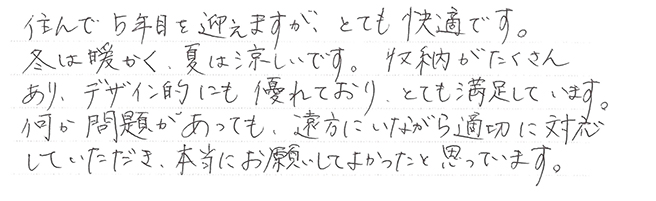 住んで5年目を迎えますが、とても快適です。
冬は暖かく、夏は涼しいです。収納がたくさん
あり、デザイン的にも優れており、とても満足しています。
何か問題があっても、遠方にいながら適切に対応
していただき、本当にお願いしてよかったと思っています。